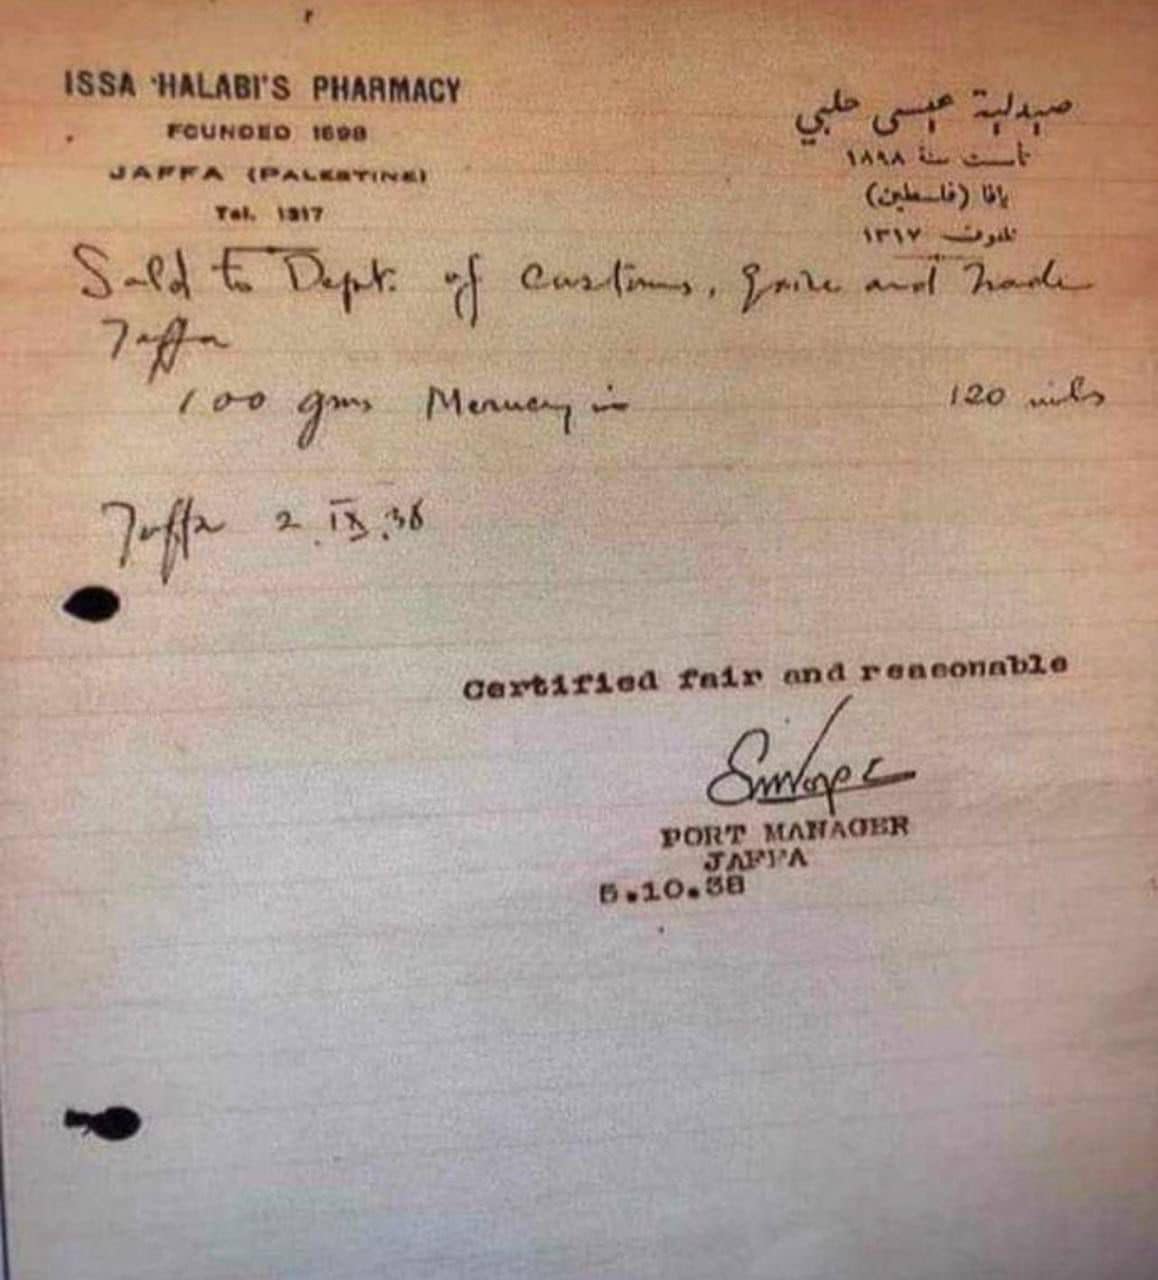 ISSA HALABI'S PHARMACY
FOUNDED 1898
JAFFA (PALESTINE)
Tel. 1317
صيدلية عيسى حلبي
تأسست سنة ١٨٩٨
يافا (فلسطين)
تلفون ١٣١٧
Sold to Dept. of Customs, Excise and Trade
Jaffa
100 gms Mercury 120 mils
Jaffa 2.IX.38
Certified fair and reasonable
PORT MANAGER
JAFFA
5.10.38